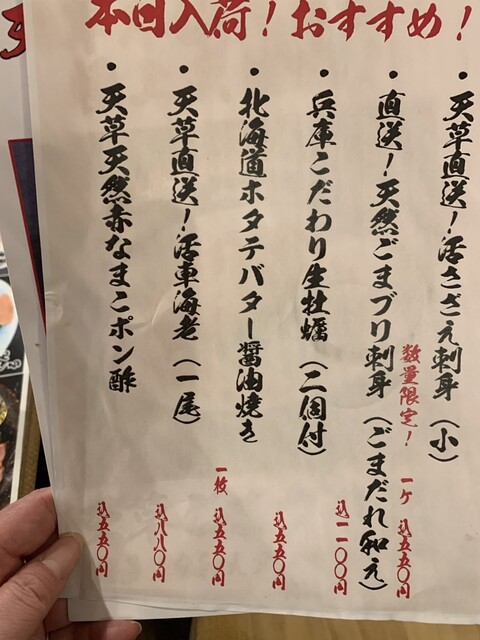 本回入荷！おすすめ！
・天草直送！活さざえ刺身（小）
一ケ 込五五〇円
・直送！天然ごまブリ刺身（ごまだれ和え）
数量限定！
込一一〇〇円
・兵庫こだわり生牡蠣（二個付）
込五五〇円
・北海道ホタテバター醤油焼き
一枚 込五五〇円
・天草直送！活車海老（一尾）
込八八〇円
・天草天然赤なまこポン酢
込五五〇円